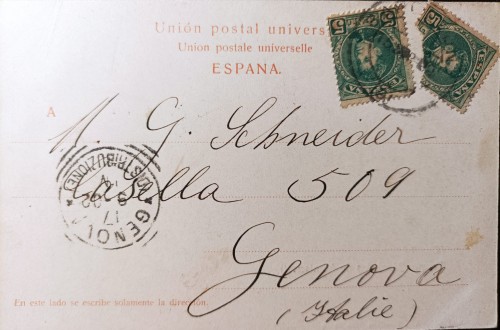 Unión postal universal
Union postale universelle
ESPAÑA.
5 5
ESPAÑA
5
ESPAÑA
A
M. G. Schneider
Casella 509
Genova
(Italie)
GENOVA
(DISTRIBUZIONE)
17
En este lado se escribe solamente la dirección.